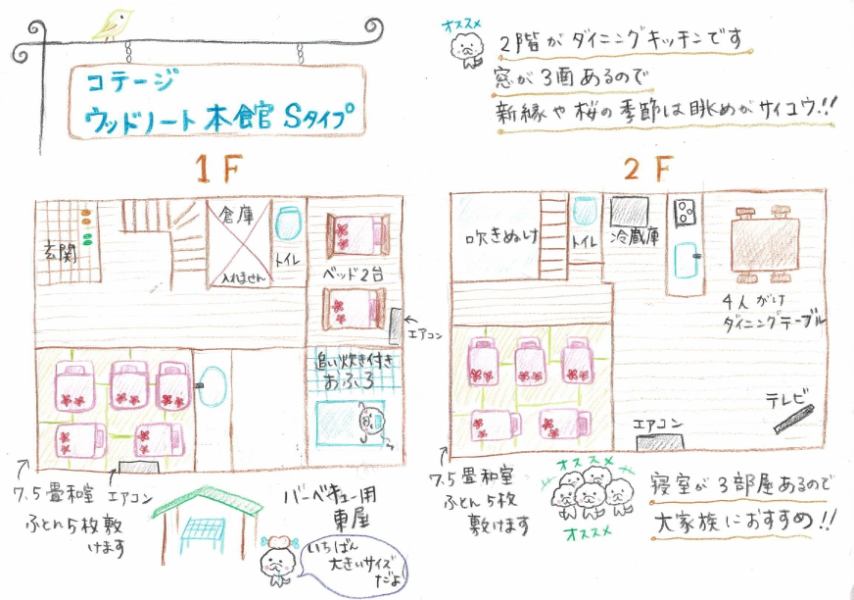 コテージ
ウッドノート 本館 Sタイプ
オススメ
2階が ダイニングキッチンです
窓が 3面 あるので
新緑や 桜の季節は 眺めがサイコウ!!
1F
玄関
倉庫
入れません
トイレ
ベッド2台
エアコン
追い炊き付き
おふろ
7.5畳和室
ふとん5枚敷
けます
エアコン
バーベキュー用
東屋
いちばん
大きいサイズ
だよ
2F
吹きぬけ
トイレ
冷蔵庫
4人がけ
ダイニングテーブル
テレビ
エアコン
7.5畳和室
ふとん5枚
敷けます
オススメ
オススメ
寝室が 3部屋あるので
大家族におすすめ!!